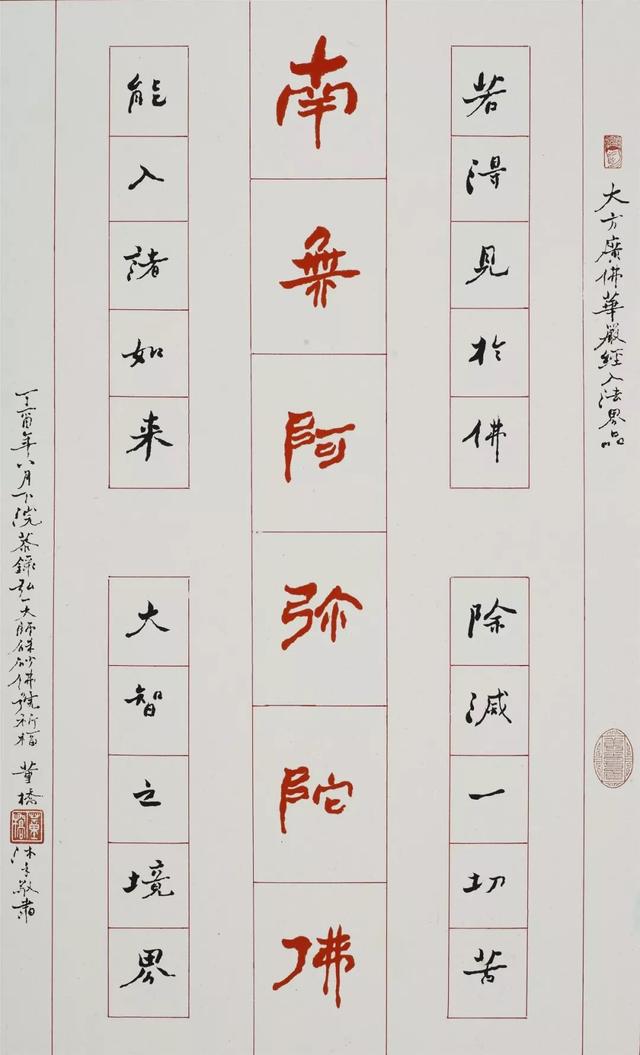 大方廣佛華嚴經入法界品
若得見於佛
除滅一切苦
南無阿弥陀佛
能入諸如来
大智之境界
丁酉年八月下浣恭錄弘一大師硃砂佛號祈福 董橋
董橋
沐手敬